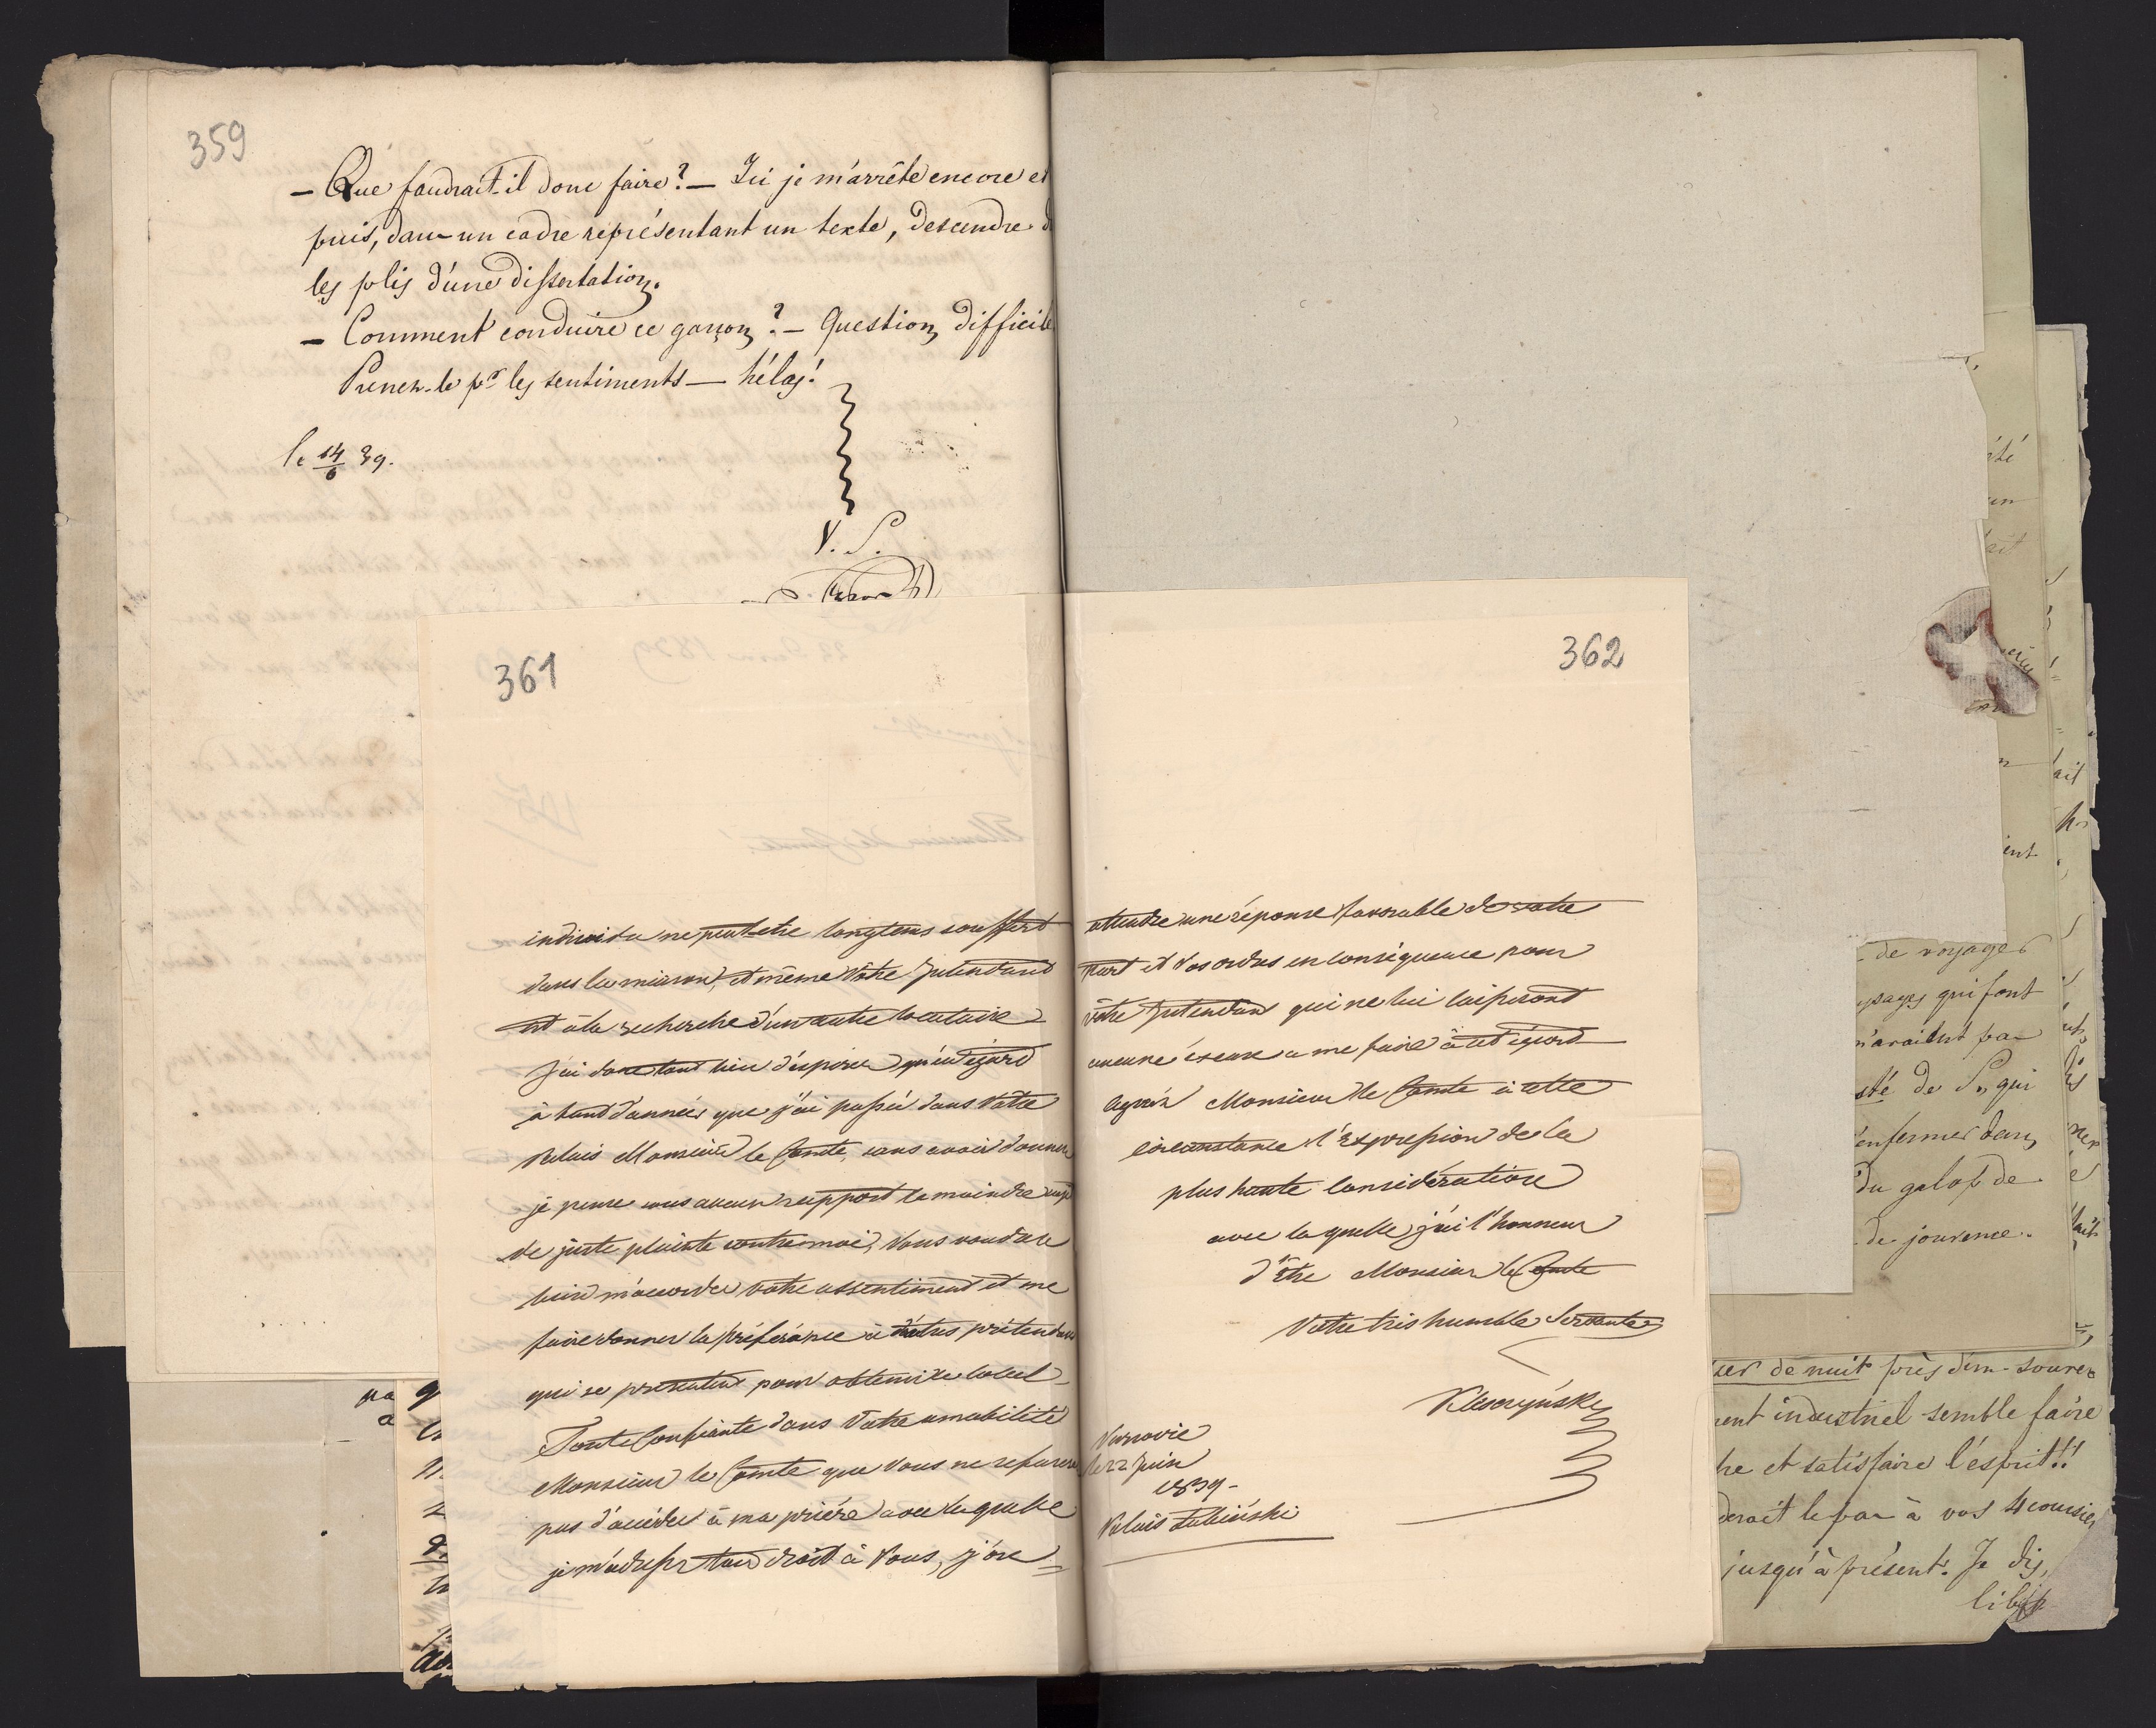 359
— Que faudrait-il donc faire? — Ici je m'arrête encore et
puis, dans un cadre représentant un texte, descendre d
les plis d'une dissertation.
— Comment conduire ce garçon? — Question difficile
Prenez-le pr les sentiments — hélas!
le 14/6 39.
V. S.
361
individu ne peut etre longtems souffert
dans la maison, et même Vôtre Intendant
est à la recherche d'un autre locataire
J'ai donc tout lieu d'esperer qu'eu égard
à tant d'années que j'ai passée dans Vôtre
Palais Monsieur le Comte, sans avoir donner
je pense sous aucun rapport le moindre sujet
de juste plainte contre moi, Vous voudrez
bien m'accorder votre assentiment et me
faire donner la préférance à d'autres prétendans
qui se presentent pour obtenir ce local
Toute Confiante dans Votre amabilité
Monsieur le Comte que Vous ne refuserez
pas d'accéder à ma prière avec laquelle
je m'adresse tout droit à Vous, j'ose
362
attendre une réponse favorable de votre
part et Vos ordres en conséquence pour
vôtre Intendant qui ne lui laisseront
aucune excuse a me faire à cet égard
Agréez Monsieur le Comte à cette
circonstance l'Expression de la
plus haute considération
avec laquelle j'ai l'honneur
d'être Monsieur le Comte
Votre tres humble Servante
Kleszyńska
Varsovie
le 22 Juin
1839 -
Palais Łubieński
de voyages
ysages qui font
n'avaient pas
sté de S., qui
enfermer dans
du galop de
de jouvence.
de nuit près d'un
ent industriel semble faire
re et satisfaire l'esprit!!
derait le pas à vos 4 coursier
jusqu'à présent. Je dis,